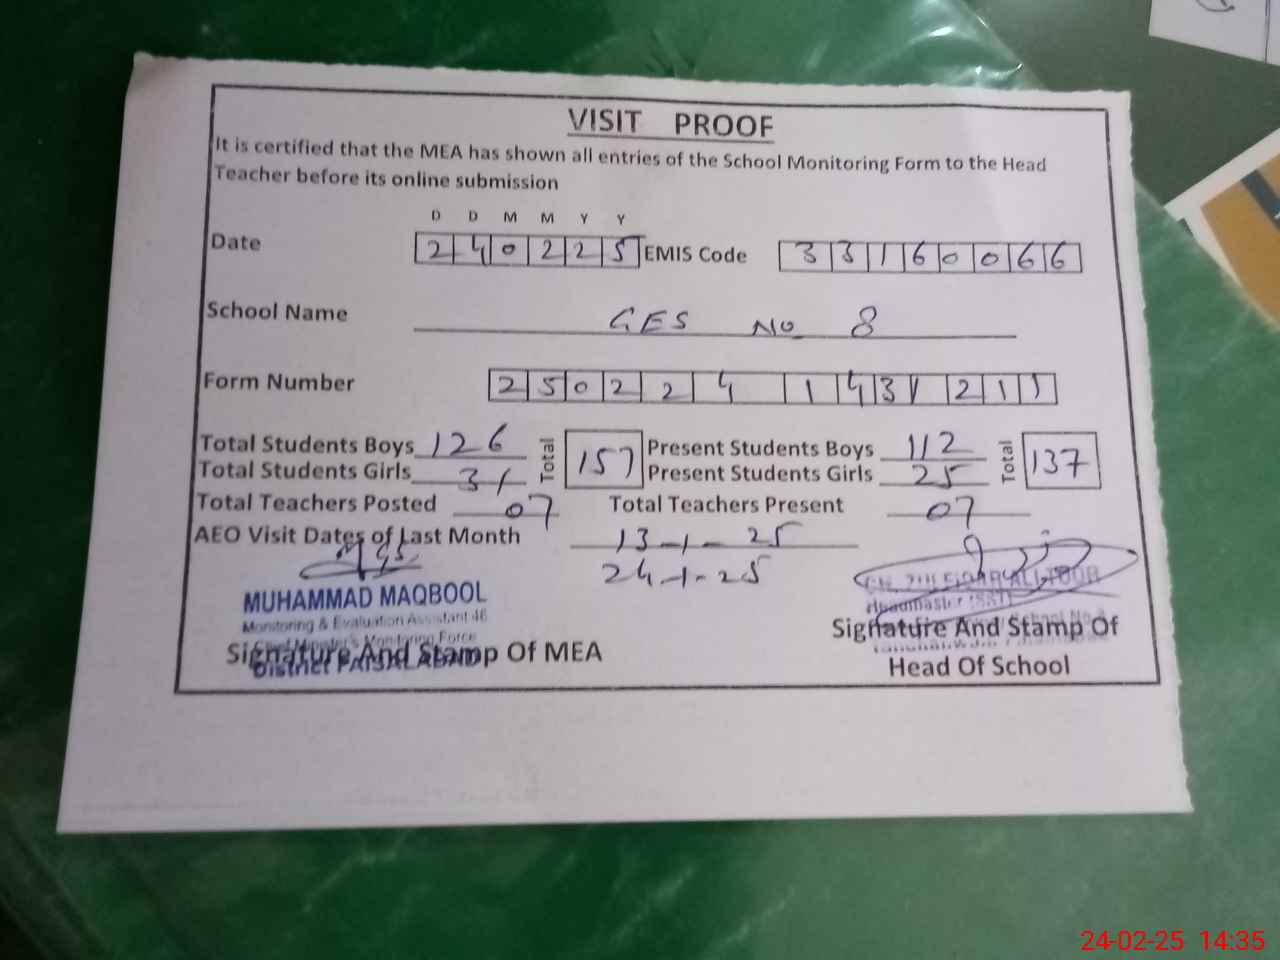 VISIT PROOF
It is certified that the MEA has shown all entries of the School Monitoring Form to the Head
Teacher before its online submission
D D M M Y Y
Date 2 4 0 2 2 5 EMIS Code 3 3 1 6 0 0 6 6
School Name GES No 8
Form Number 2 5 0 2 2 4 1 4 3 1 2 1 1
Total Students Boys 126 Total 157 Present Students Boys 112 Total 137
Total Students Girls 31 Present Students Girls 25
Total Teachers Posted 07 Total Teachers Present 07
AEO Visit Dates of Last Month 13-1-25
24-1-25
MUHAMMAD MAQBOOL
Monitoring & Evaluation Assistant 46
Chief Minister's Monitoring Force
District FAISALABAD
Signature And Stamp Of MEA
CH. ZULFIQAR ALI TOOR
Headmaster (SST)
School No 8
Signature And Stamp Of
Head Of School
24-02-25 14:35